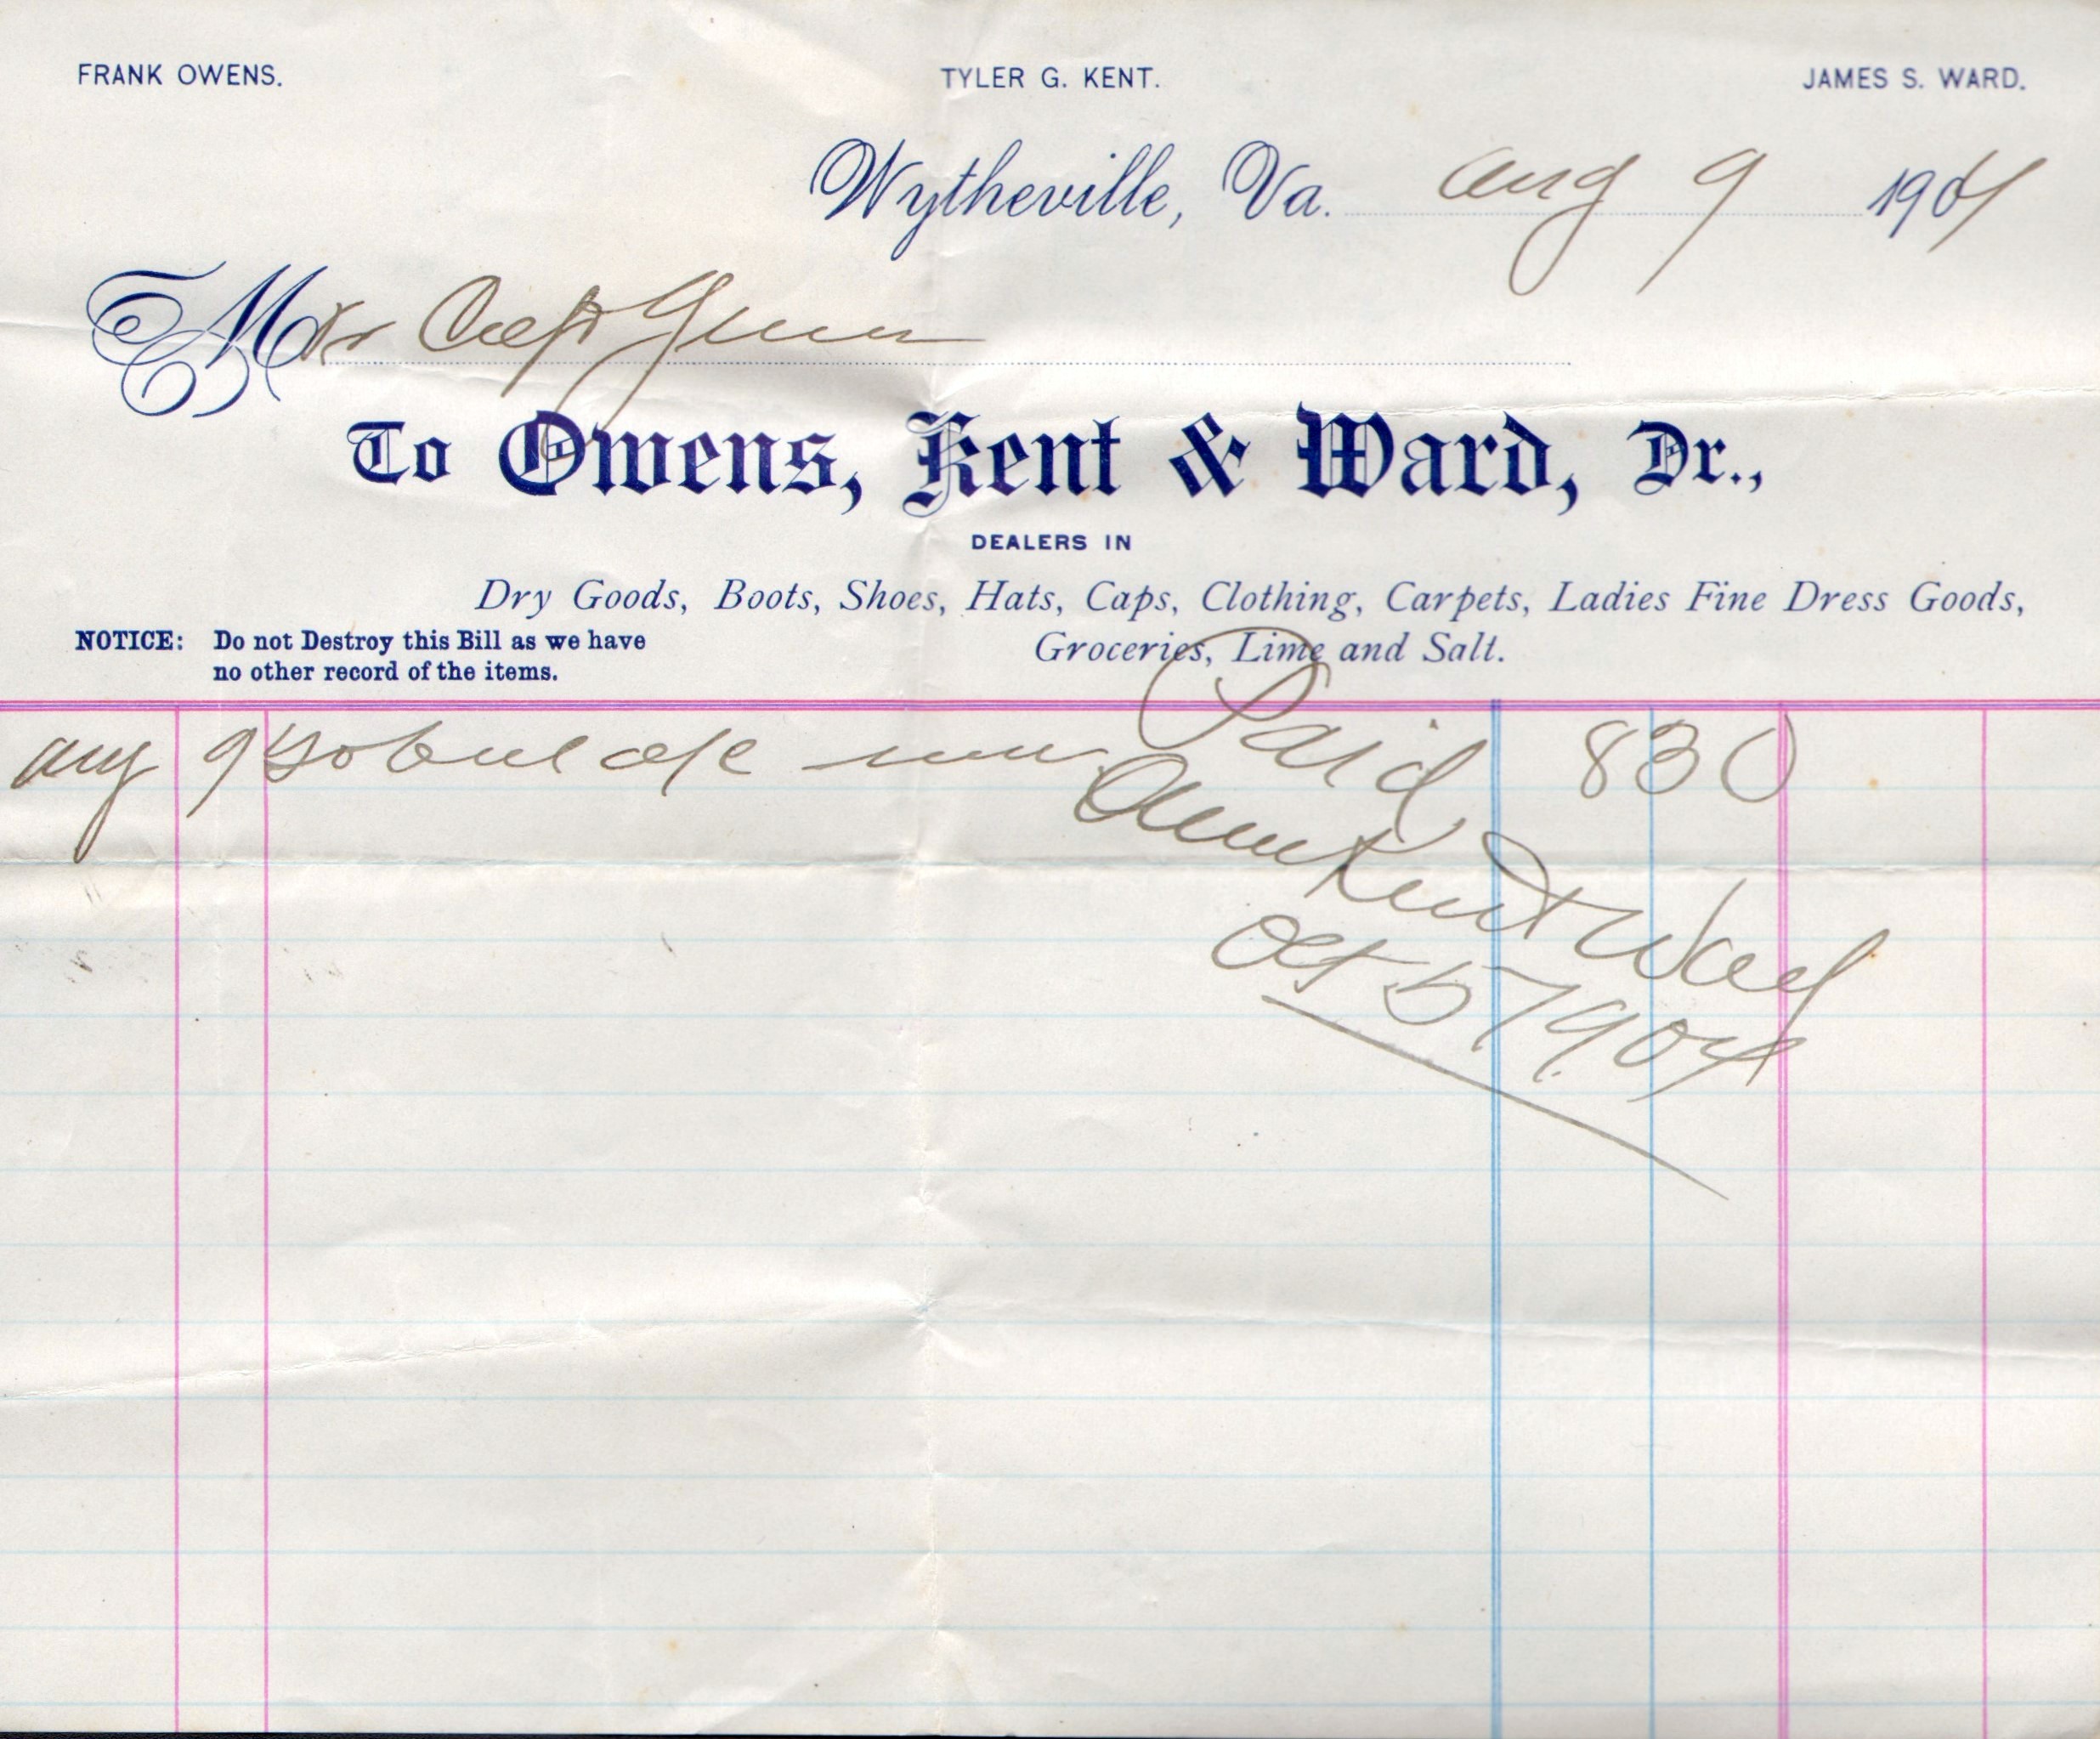 FRANK OWENS. TYLER G. KENT. JAMES S. WARD.
Wytheville, Va. Aug 9 1904
Mr
To Owens, Kent & Ward, Dr.,
DEALERS IN
Dry Goods, Boots, Shoes, Hats, Caps, Clothing, Carpets, Ladies Fine Dress Goods,
Groceries, Lime and Salt.
NOTICE: Do not Destroy this Bill as we have
no other record of the items.
Aug 9 To 8 30
Paid
Owen Kent & Ward
Oct 5 1904